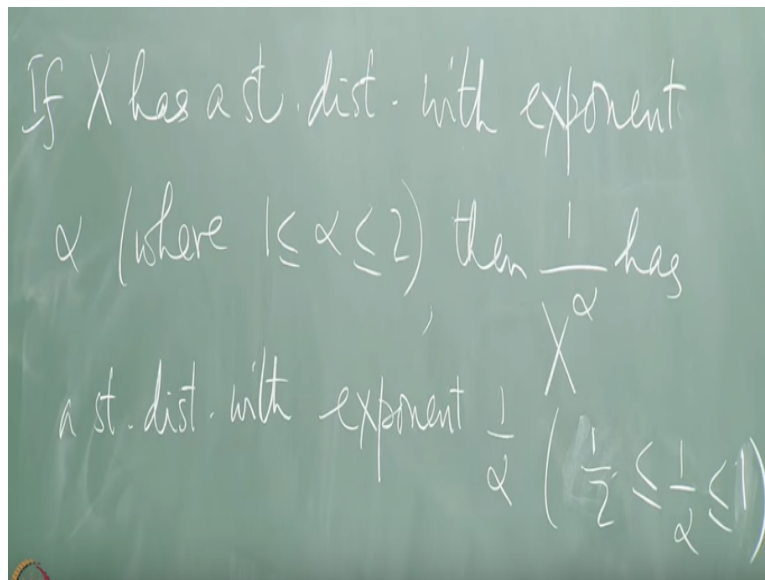 If X has a st. dist. with exponent
α (where 1 ≤ α ≤ 2), then 1/X^α has
a st. dist. with exponent 1/α (1/2 ≤ 1/α ≤ 1)